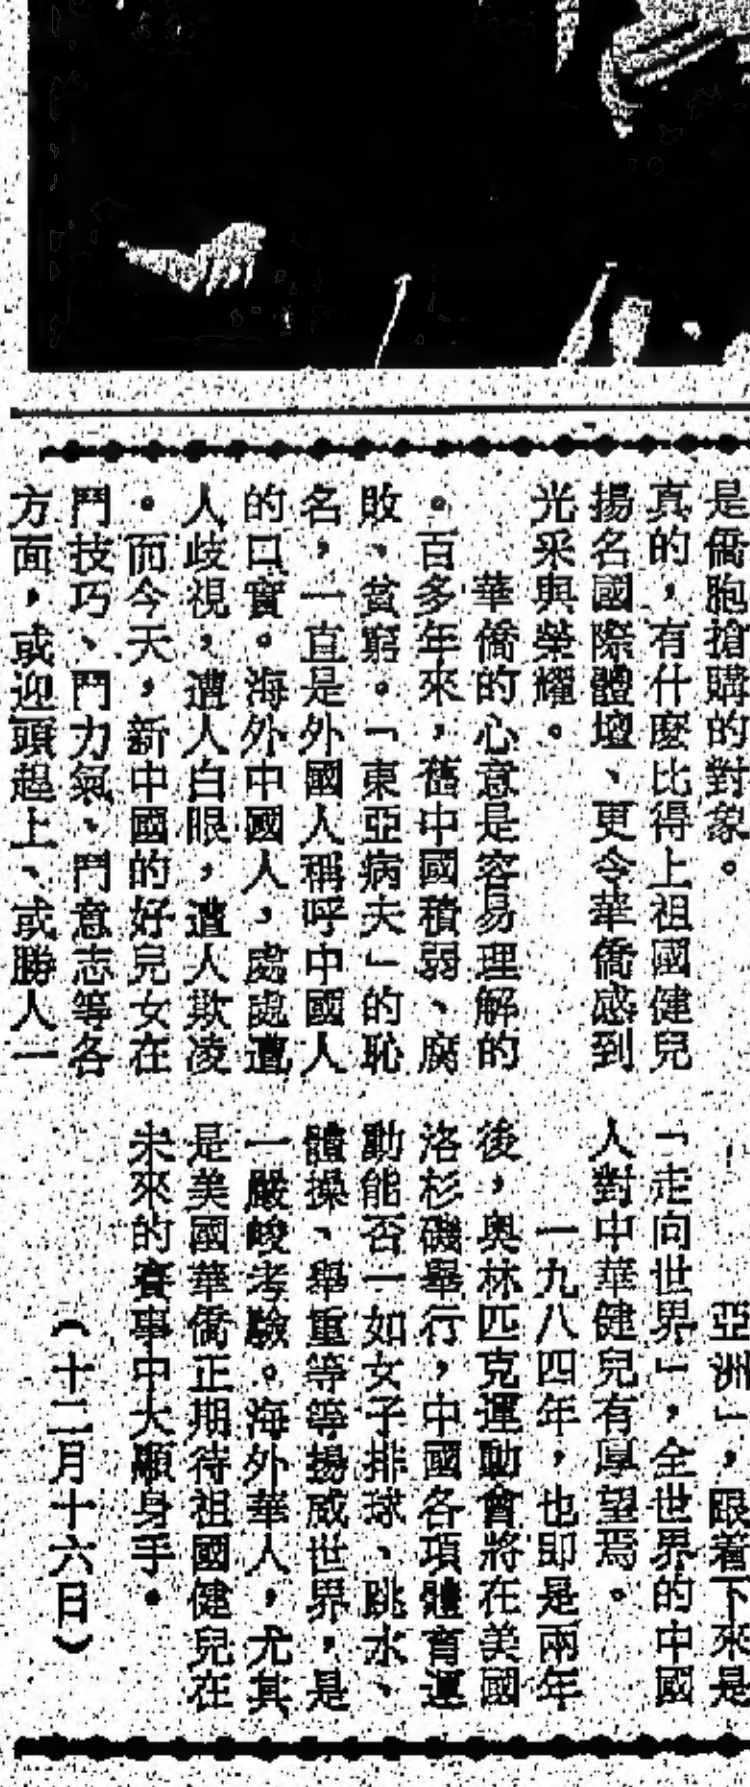 是僑胞搶購的對象。
真的，有什麼比得上祖國健兒
揚名國際體壇、更令華僑感到
光采與榮耀。
華僑的心意是容易理解的
。百多年來，舊中國積弱、腐
敗、貧窮。「東亞病夫」的恥
名，一直是外國人稱呼中國人
的口實。海外中國人，處處遭
人歧視，遭人白眼，遭人欺凌
。而今天，新中國的好兒女在
鬥技巧、鬥力氣、鬥意志等各
方面，或迎頭趕上、或勝人一
亞洲」，跟着下來是
「走向世界」，全世界的中國
人對中華健兒有厚望焉。
一九八四年，也即是兩年
後，奧林匹克運動會將在美國
洛杉磯舉行，中國各項體育運
動能否一如女子排球、跳水、
體操、舉重等等揚威世界，是
一嚴峻考驗。海外華人，尤其
是美國華僑正期待祖國健兒在
未來的賽事中大顯身手。
（十二月十六日）